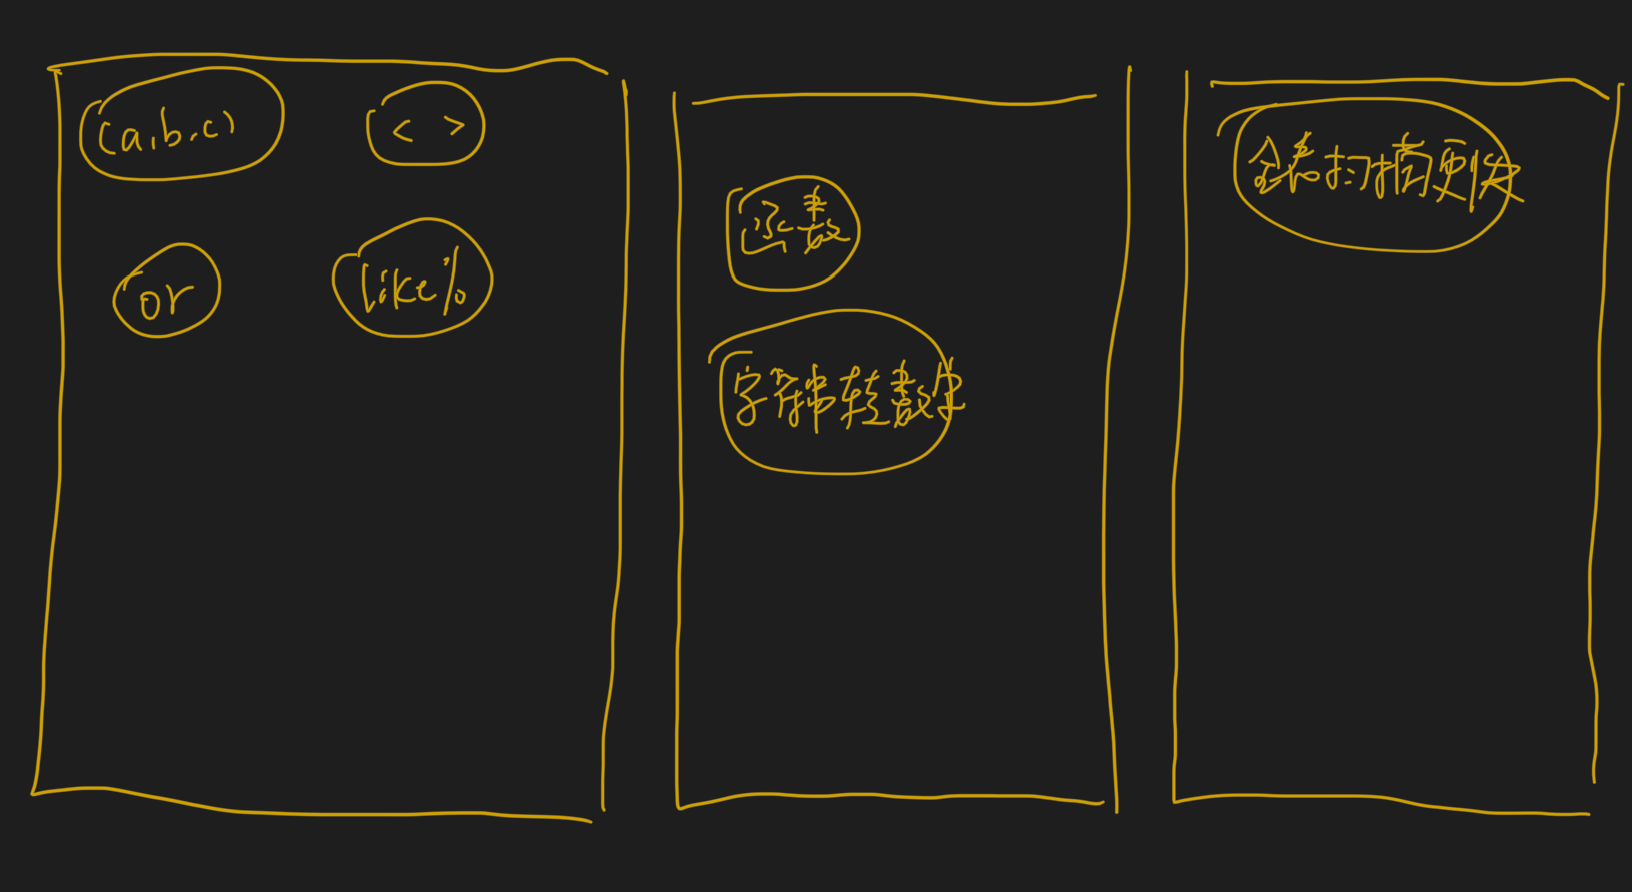 (a,b,c)
< >
or
like%
函数
字符串转数字
全表扫描更快